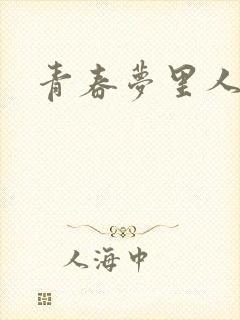 青春夢里人
人海中